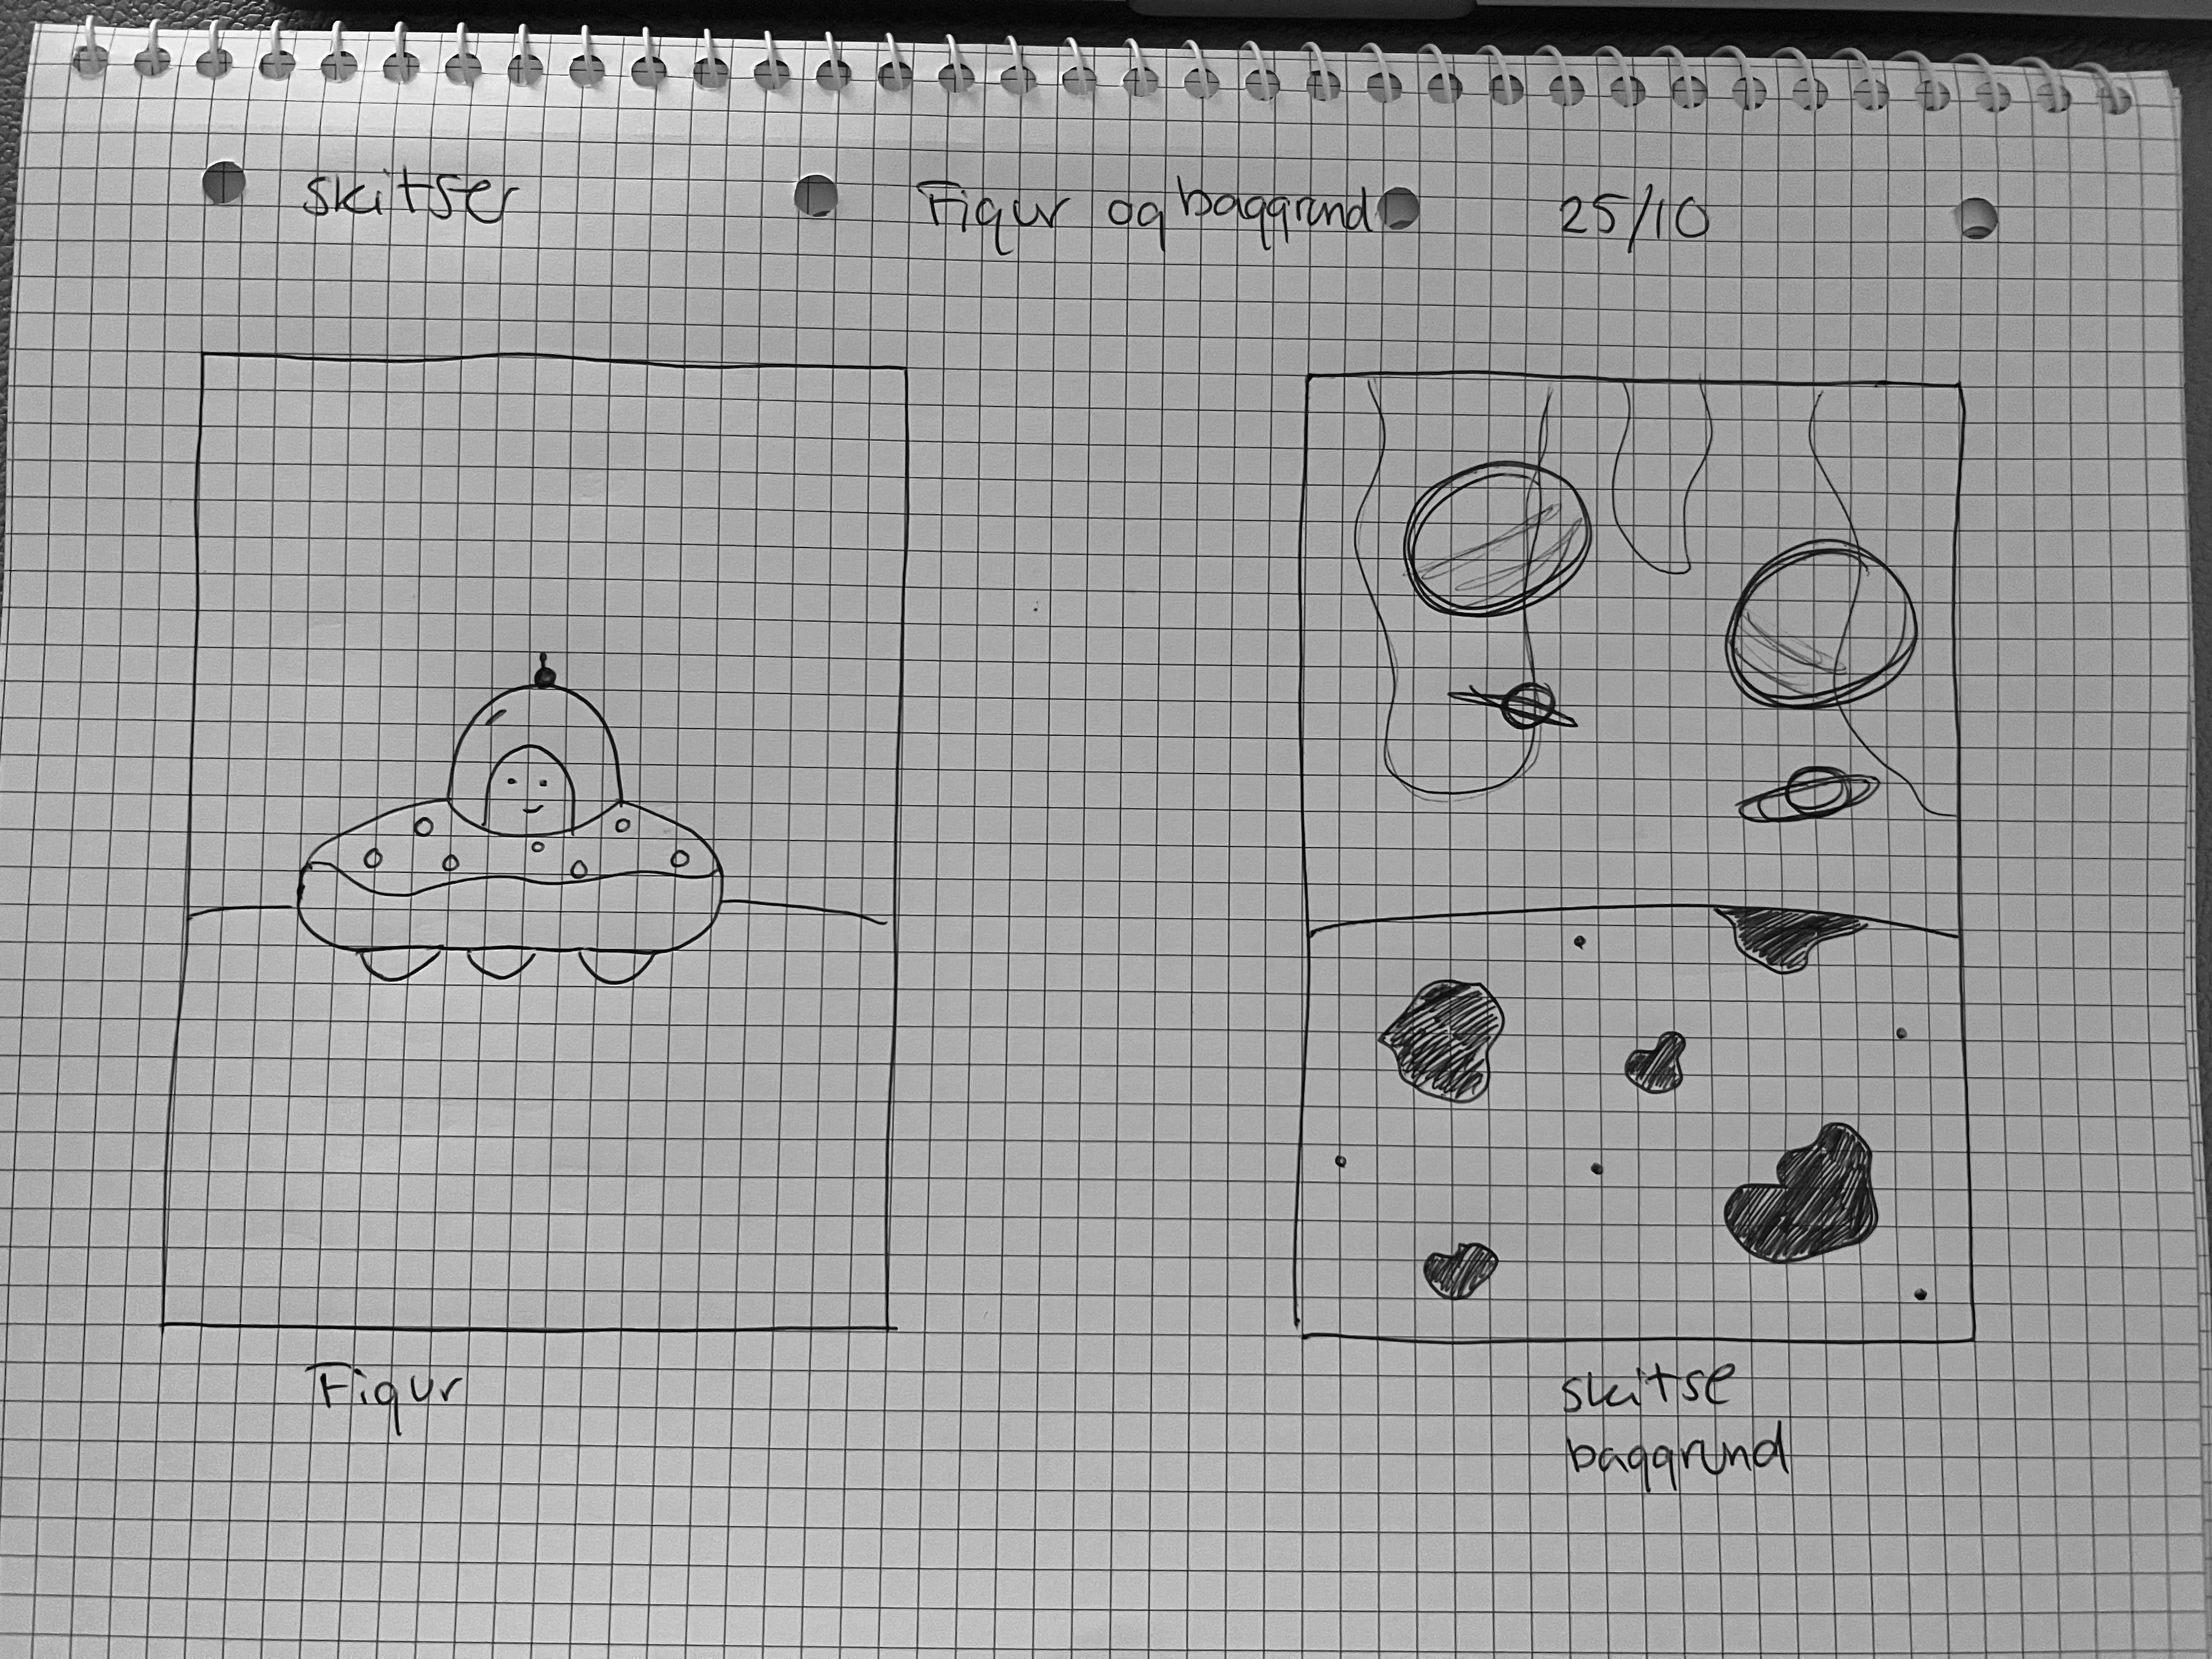 skitser Figur og baggrund 25/10
Figur
skitse
baggrund